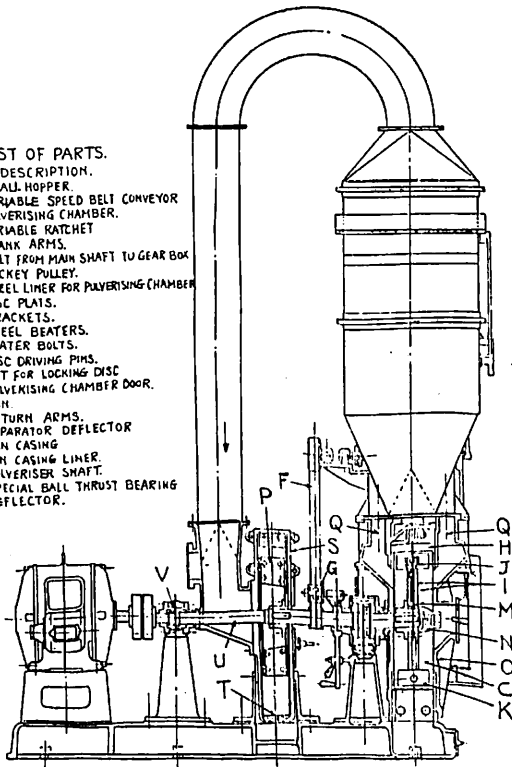 ST OF PARTS.
DESCRIPTION.
ALL HOPPER.
RIABLE SPEED BELT CONVEYOR
LVERISING CHAMBER.
RIABLE RATCHET
ANK ARMS.
LT FROM MAIN SHAFT TO GEAR BOX
CKEY PULLEY.
EEL LINER FOR PULVERISING CHAMBER
SC PLATS.
RACKETS.
EEL BEATERS.
EATER BOLTS.
SC DRIVING PINS.
T FOR LOCKING DISC
LVERISING CHAMBER DOOR.
N.
TURN ARMS.
PARATOR DEFLECTOR
N CASING
N CASING LINER.
LVERISER SHAFT.
PECIAL BALL THRUST BEARING
EFLECTOR.
F
P
Q
Q
S
H
G
J
I
V
M
N
U
O
T
C
K